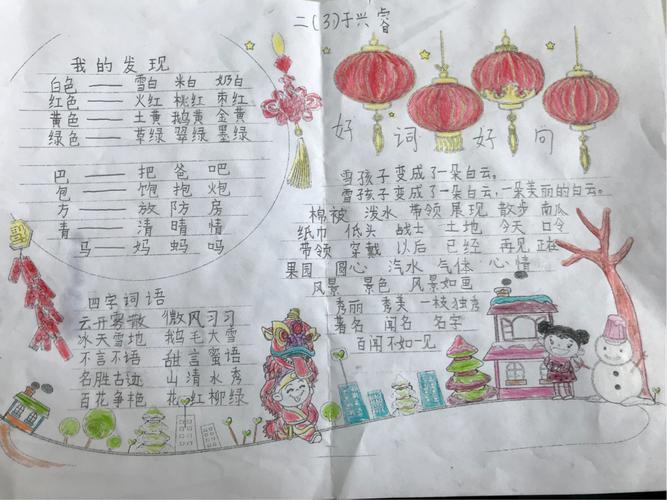 二(3)于兴睿
我的发现
白色——雪白 米白 奶白
红色——火红 桃红 枣红
黄色——土黄 鹅黄 金黄
绿色——草绿 翠绿 墨绿
巴——把 爸 吧
包——饱 抱 炮
方——放 防 房
青——清 晴 情
马——妈 蚂 吗
四字词语
云开雾散 微风习习
冰天雪地 鹅毛大雪
不言不语 甜言蜜语
名胜古迹 山清水秀
百花争艳 花红柳绿
好词好句
雪孩子变成了一朵白云。
雪孩子变成了一朵白云,一朵美丽的白云。
棉被 泼水 带领 展现 散步 南瓜
纸巾 低头 战士 土地 今天 口令
带领 穿戴 以后 已经 再见
果园 圆心 汽水 气体 心情
风景 景色 风景如画
秀丽 秀美 一枝独秀
著名 闻名 名字
百闻不如一见